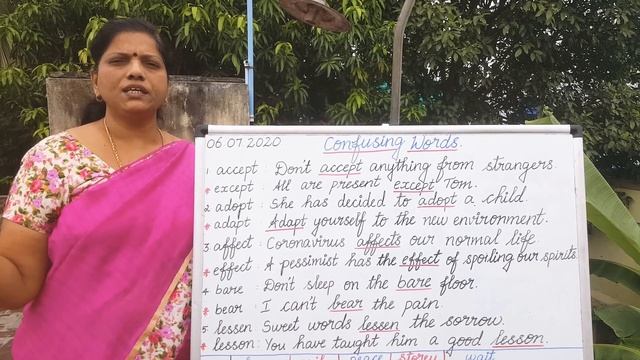 06.07.2020 Confusing Words.
1 accept : Don't accept anything from strangers.
* except : All are present except Tom.
2 adopt : She has decided to adopt a child.
* adapt : Adapt yourself to the new environment.
3 affect : Coronavirus affects our normal life.
* effect : A pessimist has the effect of spoiling our spirits.
4 bare : Don't sleep on the bare floor.
* bear : I can't bear the pain.
5 lessen Sweet words lessen the sorrow.
* lesson : You have taught him a good lesson.
peace storey wait